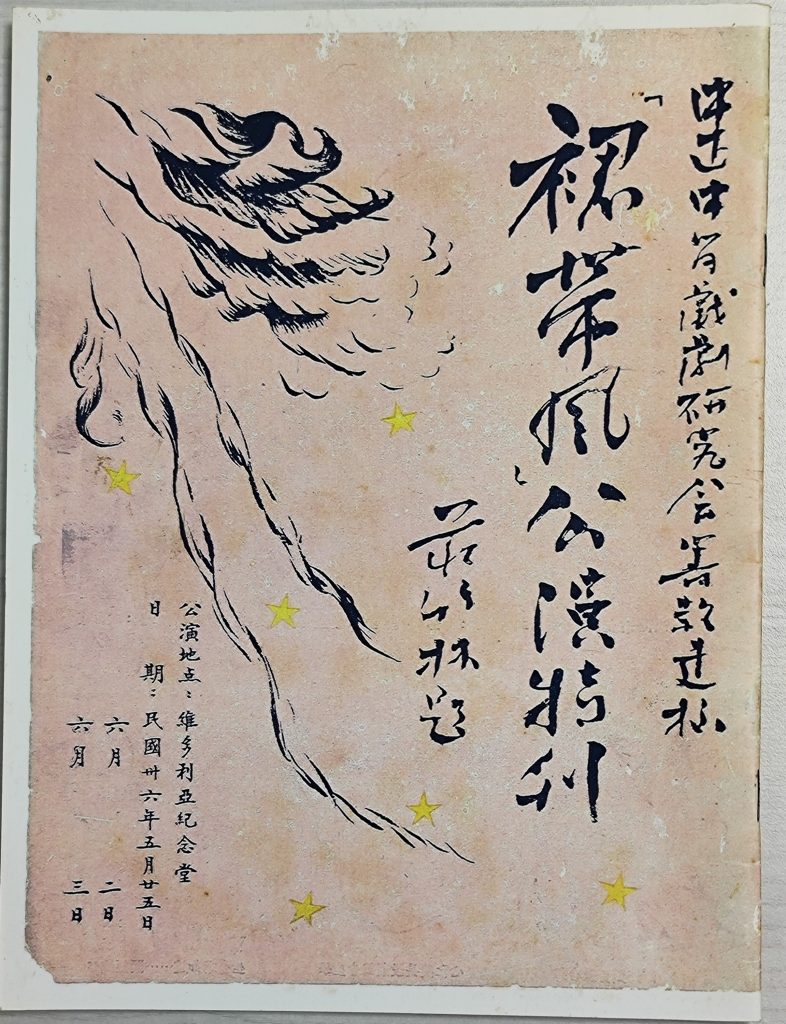 中正中学戲劇研究会籌款建校
「裙帶風」公演特刊
莊竹林題
公演地点：維多利亞紀念堂
日　期：民國卅六年五月廿五日
六月　二日
六月　三日